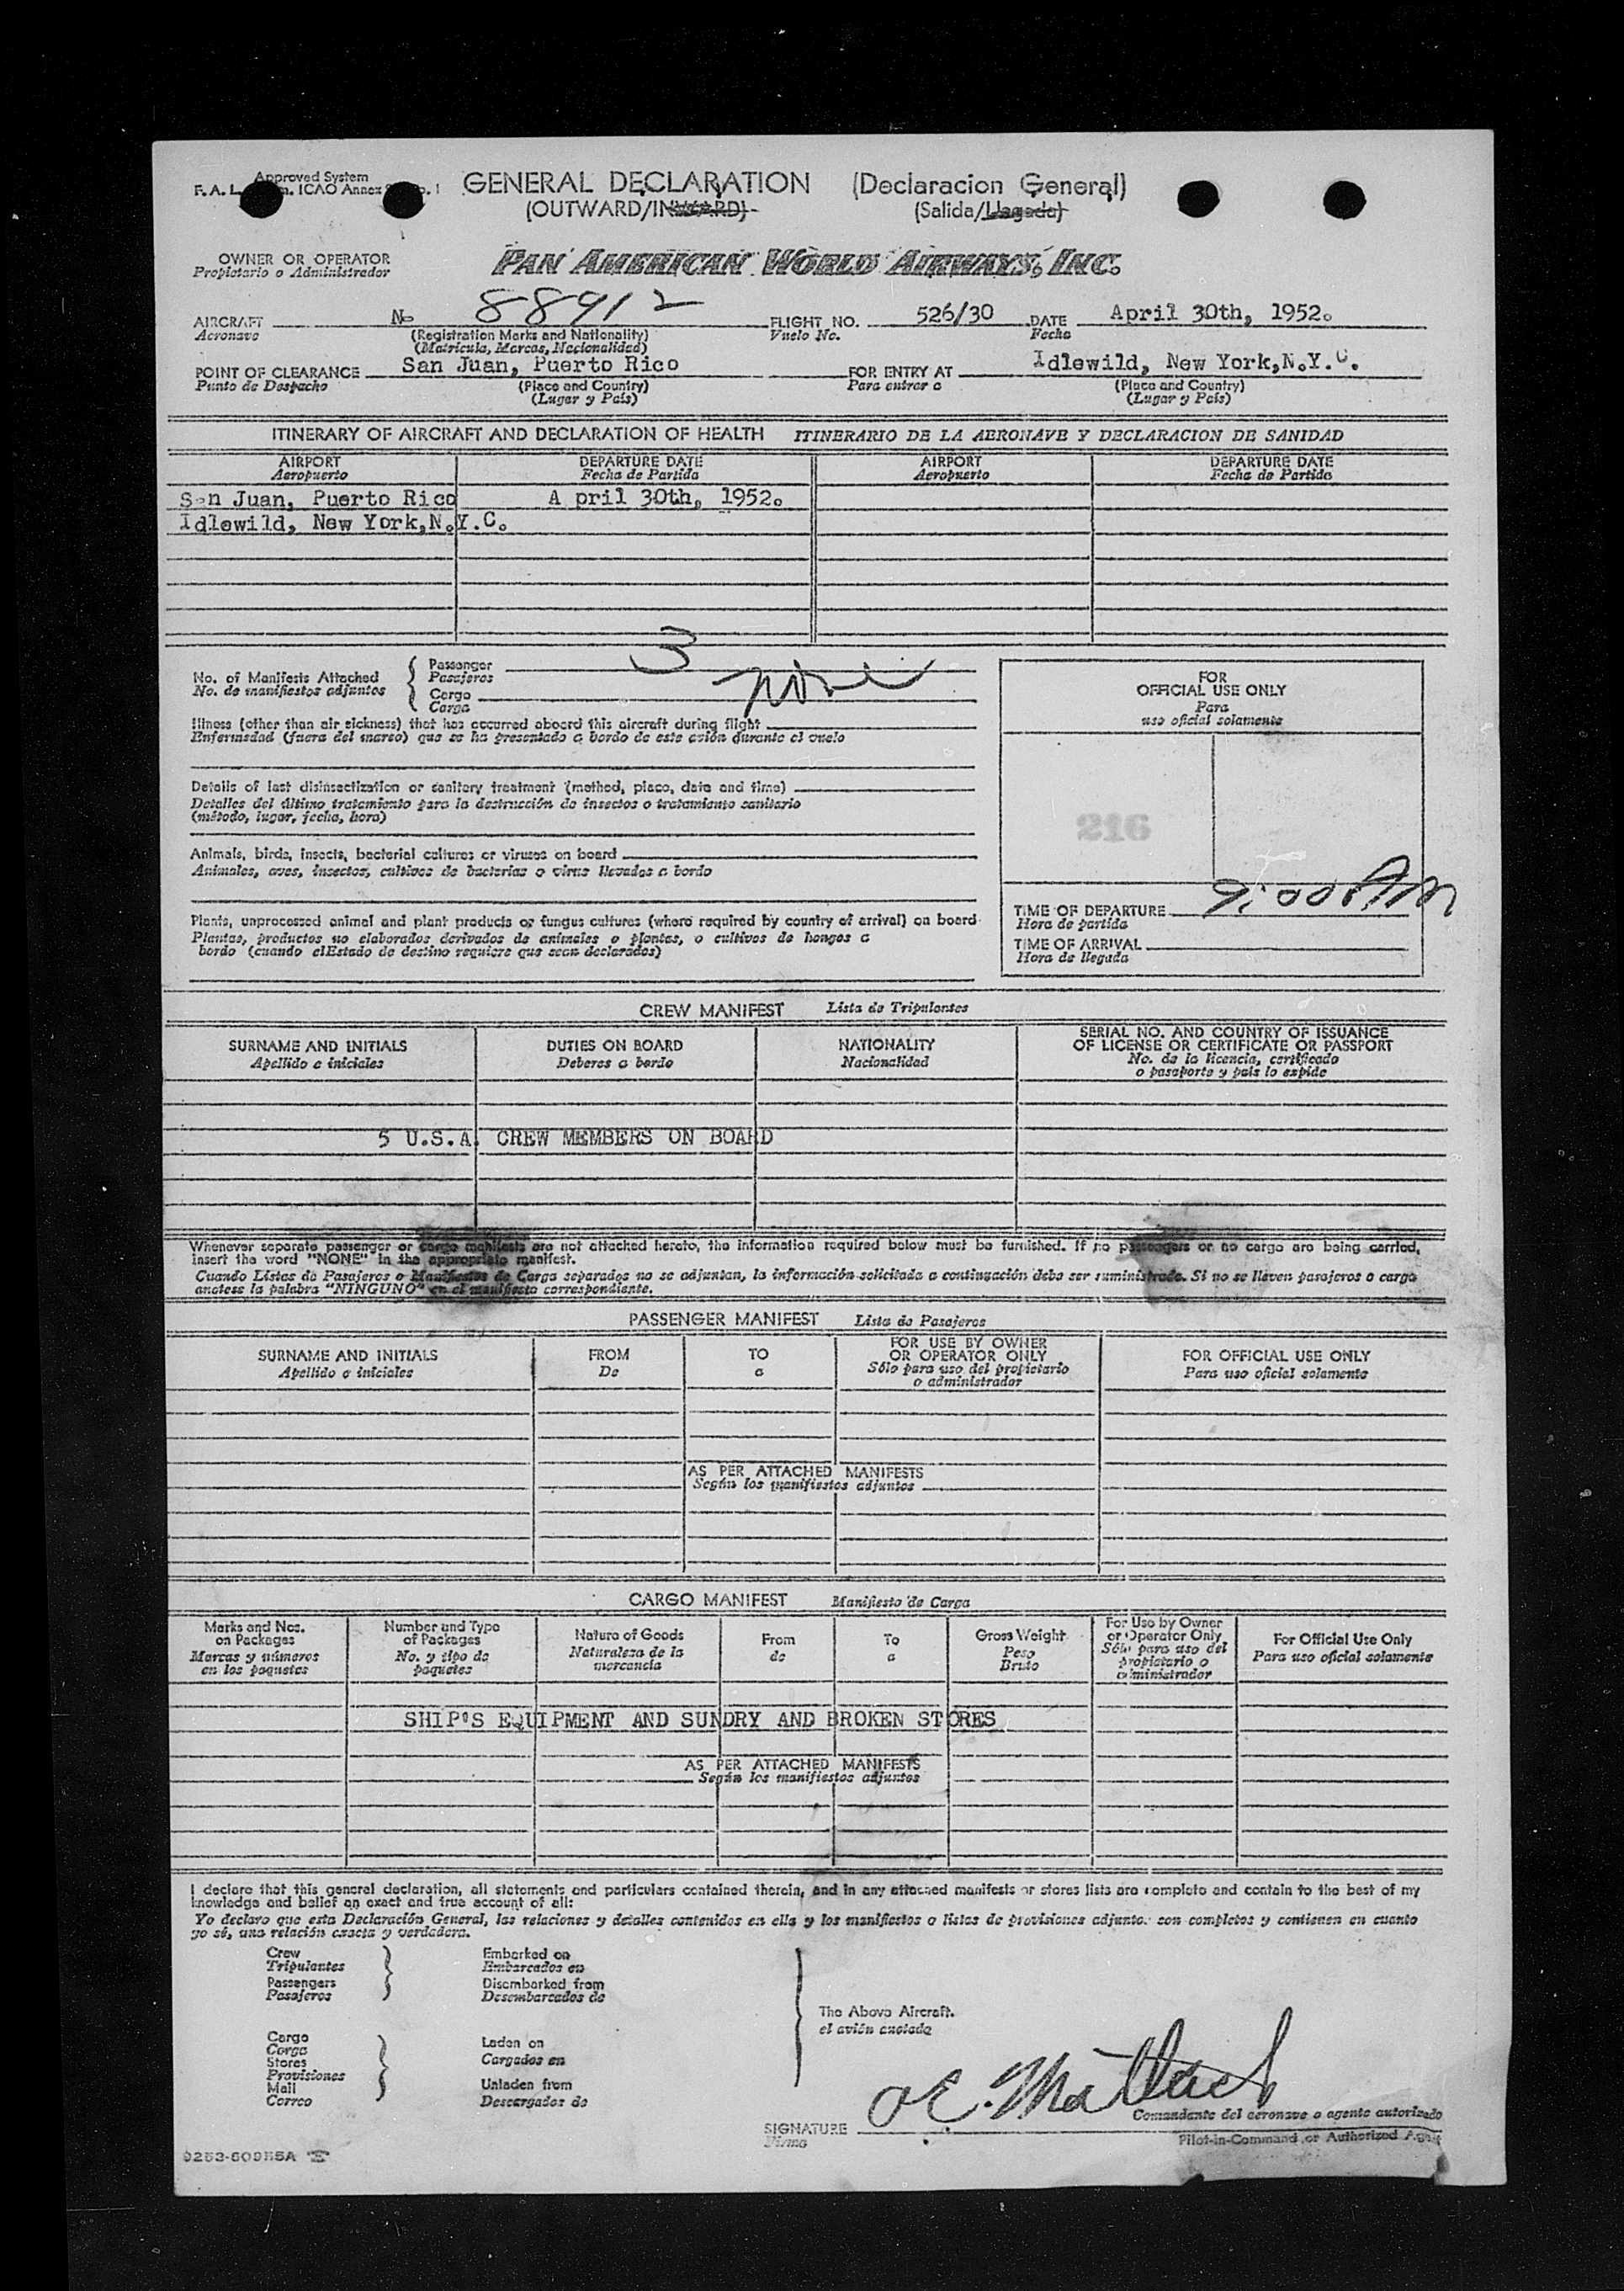 Approved System
F. A. L. ICAO Annex
GENERAL DECLARATION (Declaracion General)
(OUTWARD/INWARD) (Salida/Llegada)
OWNER OR OPERATOR
Propietario o Administrador
PAN AMERICAN WORLD AIRWAYS, INC.
AIRCRAFT N 88912 FLIGHT NO. 526/30 DATE April 30th, 1952.
Aeronave (Registration Marks and Nationality) Vuelo No. Fecha
(Matricula, Marcas, Nacionalidad)
POINT OF CLEARANCE San Juan, Puerto Rico FOR ENTRY AT Idlewild, New York,N.Y.C.
Punto de Despacho (Place and Country) Para entrar a (Place and Country)
(Lugar y País) (Lugar y País)
ITINERARY OF AIRCRAFT AND DECLARATION OF HEALTH ITINERARIO DE LA AERONAVE Y DECLARACION DE SANIDAD
AIRPORT DEPARTURE DATE AIRPORT DEPARTURE DATE
Aeropuerto Fecha de Partida Aeropuerto Fecha de Partida
San Juan, Puerto Rico A pril 30th, 1952.
Idlewild, New York,N.Y.C.
No. of Manifests Attached
No. de manifiestos adjuntos
Passenger 3
Pasajeros
Cargo none
Carga
Illness (other than air sickness) that has occurred aboard this aircraft during flight
Enfermedad (fuera del mareo) que se ha presentado a bordo de este avión durante el vuelo
Details of last disinsectization or sanitary treatment (method, place, date and time)
Detalles del último tratamiento para la destrucción de insectos o tratamiento sanitario
(método, lugar, fecha, hora)
Animals, birds, insects, bacterial cultures or viruses on board
Animales, aves, insectos, cultivos de bacterias o virus llevados a bordo
Plants, unprocessed animal and plant products or fungus cultures (where required by country of arrival) on board
Plantas, productos no elaborados derivados de animales o plantas, o cultivos de hongos a
bordo (cuando elEstado de destino requiere que sean declarados)
FOR
OFFICIAL USE ONLY
Para
uso oficial solamente
216
TIME OF DEPARTURE 9:00 AM
Hora de partida
TIME OF ARRIVAL
Hora de llegada
CREW MANIFEST Lista de Tripulantes
SURNAME AND INITIALS DUTIES ON BOARD NATIONALITY SERIAL NO. AND COUNTRY OF ISSUANCE
OF LICENSE OR CERTIFICATE OR PASSPORT
Apellido e iniciales Deberes a bordo Nacionalidad No. de la licencia, certificado
o pasaporte y país lo expide
5 U.S.A. CREW MEMBERS ON BOARD
Whenever separate passenger or cargo manifests are not attached hereto, the information required below must be furnished. If no passengers or no cargo are being carried,
insert the word "NONE" in the appropriate manifest.
Cuando Listas de Pasajeros o Manifiestos de Carga separados no se adjuntan, la información solicitada a continuación debe ser suministrada. Si no se lleven pasajeros o carga
anotese la palabra "NINGUNO" en el manifiesto correspondiente.
PASSENGER MANIFEST Lista de Pasajeros
SURNAME AND INITIALS FROM TO FOR USE BY OWNER
OR OPERATOR ONLY FOR OFFICIAL USE ONLY
Apellido e iniciales De a Sólo para uso del propietario
o administrador Para uso oficial solamente
AS PER ATTACHED MANIFESTS
Según los manifiestos adjuntos
CARGO MANIFEST Manifiesto de Carga
Marks and Nos.
on Packages
Marcas y números
en los paquetes
Number and Type
of Packages
No. y tipo de
paquetes
Nature of Goods
Naturaleza de la
mercancia
From
de
To
a
Gross Weight
Peso
Bruto
For Use by Owner
or Operator Only
Sólo para uso del
propietario o
administrador
For Official Use Only
Para uso oficial solamente
SHIP'S EQUIPMENT AND SUNDRY AND BROKEN STORES
AS PER ATTACHED MANIFESTS
Según los manifiestos adjuntos
I declare that this general declaration, all statements and particulars contained therein, and in any attached manifests or stores lists are complete and contain to the best of my
knowledge and belief an exact and true account of all:
Yo declaro que esta Declaración General, las relaciones y detalles contenidos en ella y los manifiestos o listas de provisiones adjunto. son completos y contienen en cuanto
yo sé, una relación exacta y verdadera.
Crew
Tripulantes
Passengers
Pasajeros
Embarked on
Embarcados en
Disembarked from
Desembarcados de
Cargo
Carga
Stores
Provisiones
Mail
Correo
Laden on
Cargados en
Unladen from
Descargados de
The Above Aircraft.
el avión anotado
SIGNATURE
Firma
Comandante del aeronave o agente autorizado
Pilot-in-Command or Authorized Agent